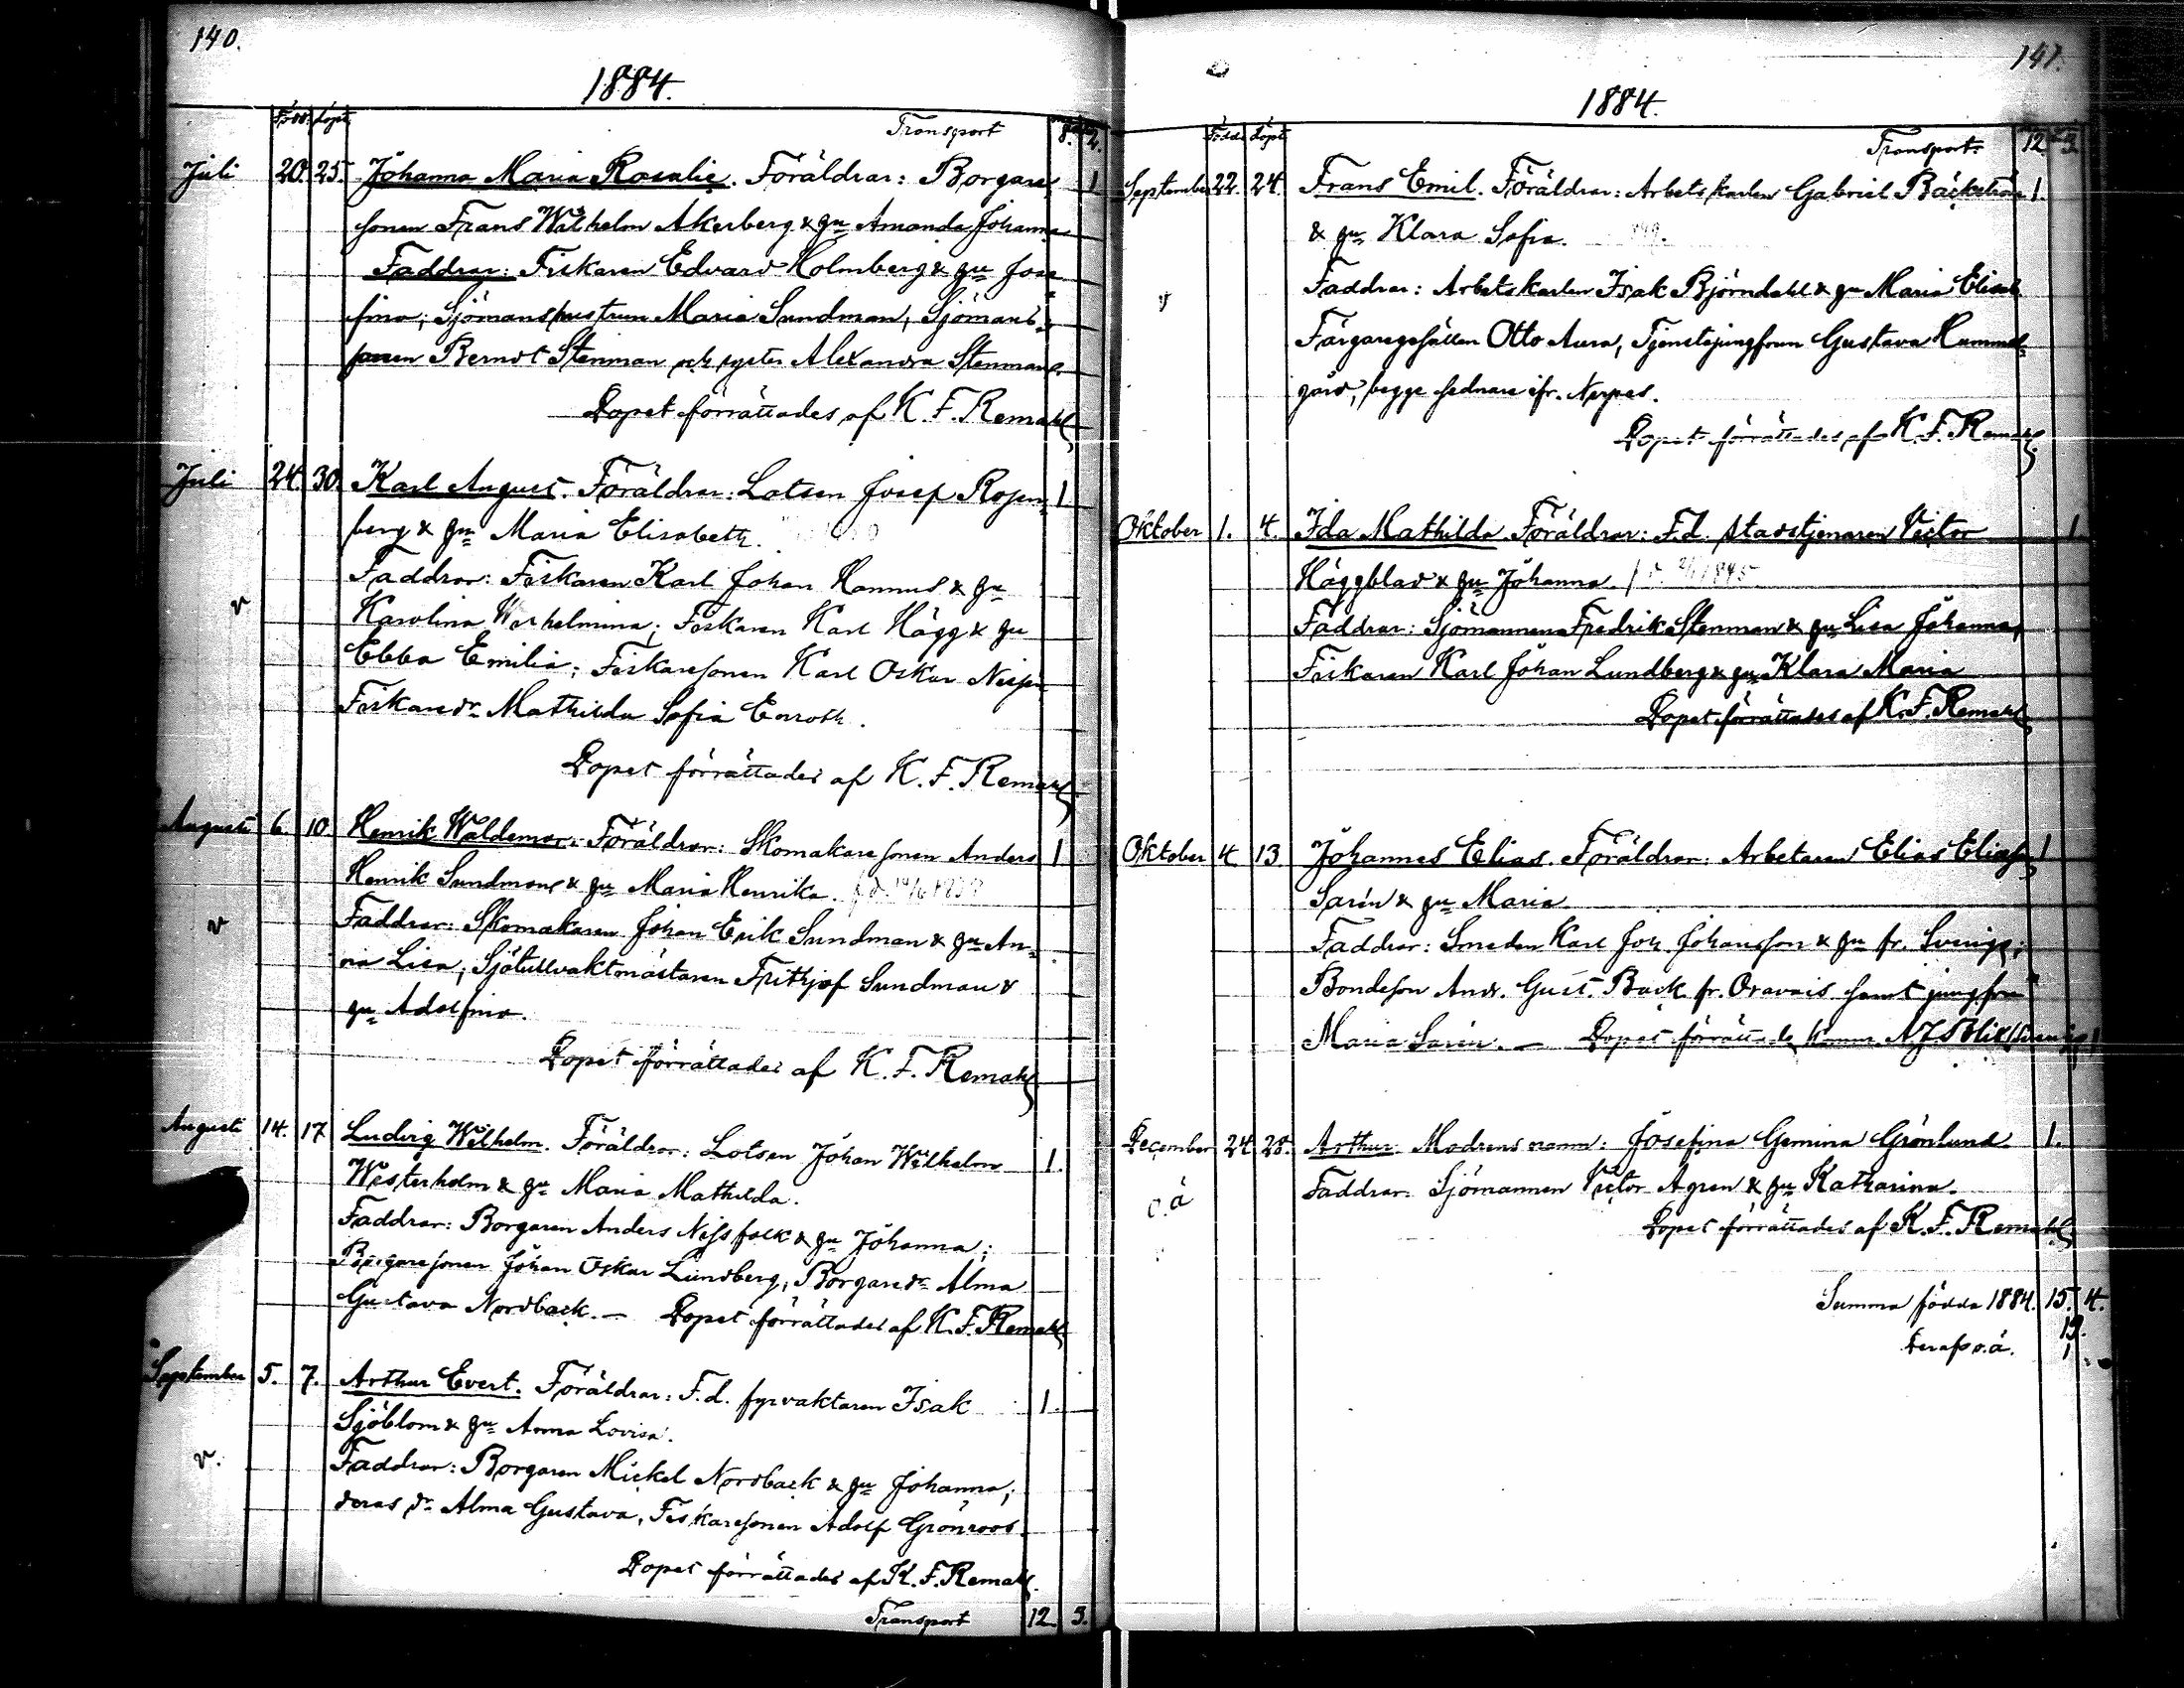 140.
1884.
Född. Döpt. Transport 8. 2.
Juli 20. 25. Johanna Maria Rosalie. Föräldrar: Borgare 1
sonen Frans Wilhelm Åkerberg & hu Amanda Johanna
Faddrar: Fiskaren Edvard Holmberg & hu Jose
fina; Sjömanshustrun Maria Sundman, Sjömans
sonen Berndt Stenman och syster Alexandra Stenman.
Dopet förrättades af K. F. Remahl
Juli 24. 30. Karl August. Föräldrar: Lotsen Josef Rosen 1
berg & hu Maria Elisabeth.
Faddrar: Fiskaren Karl Johan Hannus & hu
v Karolina Wilhelmina; Fiskaren Karl Hägg & hu
Ebba Emilia; Fiskaresonen Karl Oskar
Fiskaredr Mathilda Sofia Enroth.
Dopet förrättades af K. F. Remahl
Augusti 6. 10. Henrik Waldemar. Föräldrar: Skomakaresonen Anders 1
Henrik Sundman & hu Maria Henrika.
v Faddrar: Skomakaren Johan Erik Sundman & hu An
na Lisa, Sjötullvaktmästaren Frithjof Sundman &
hu Adolfina.
Dopet förrättades af K. F. Remahl
Augusti 14. 17 Ludvig Wilhelm. Föräldrar: Lotsen Johan Wilhelm 1.
Westerholm & hu Maria Mathilda.
Faddrar: Borgaren Anders Nissfolk & hu Johanna;
Borgaresonen Johan Oskar Lundberg, Borgaredr Alma
Gustava Nordback. — Dopet förrättades af K. F. Remahl
September 5. 7. Arthur Evert. Föräldrar: F.d. fyrvaktaren Isak 1.
Sjöblom & hu Anna Lovisa.
v. Faddrar: Borgaren Mickel Nordback & hu Johanna;
deras dr Alma Gustava, Fiskaresonen Adolf Grönroos.
Dopet förrättades af K. F. Remahl.
Transport 12. 3.
141.
1884.
Födde Döpt. Transport. 12. 3
September 22. 24. Frans Emil. Föräldrar: Arbetskarlen Gabriel Bäckström 1.
& hu Klara Sofia.
Faddrar: Arbetskarlen Isak Björndahl & hu Maria Elisab.
Färgaregesällen Otto Aura, Tjenstejungfrun Gustava Hammel
gård, begge sednare ifr. Nerpes.
Dopet förrättades af K. F. Remahl
Oktober 1. 4. Ida Mathilda. Föräldrar: F.d. stadstjenaren Victor 1.
Häggblad & hu Johanna.
Faddrar: Sjömannen Fredrik Stenman & hu Lisa Johanna,
Fiskaren Karl Johan Lundberg & hu Klara Maria
Dopet förrättades af K. F. Remahl
Oktober 4 13 Johannes Elias. Föräldrar: Arbetaren Elias Eliass 1
Sarin & hu Maria.
Faddrar: Smeden Karl Joh. Johansson & hu fr. Sverige;
Bondeson Andr. Gust. Back fr. Oravais samt jungfru
Maria Sarin. — Dopet förrättade
December 24 28. Arthur. Modrens namn: Josefina Gemina Grönlund. 1.
o.ä Faddrar: Sjömannen Victor Ågren & hu Katharina.
Dopet förrättades af K. F. Remahl
Summa födda 1884. 15. 4.
19.
Deraf o.ä. 1